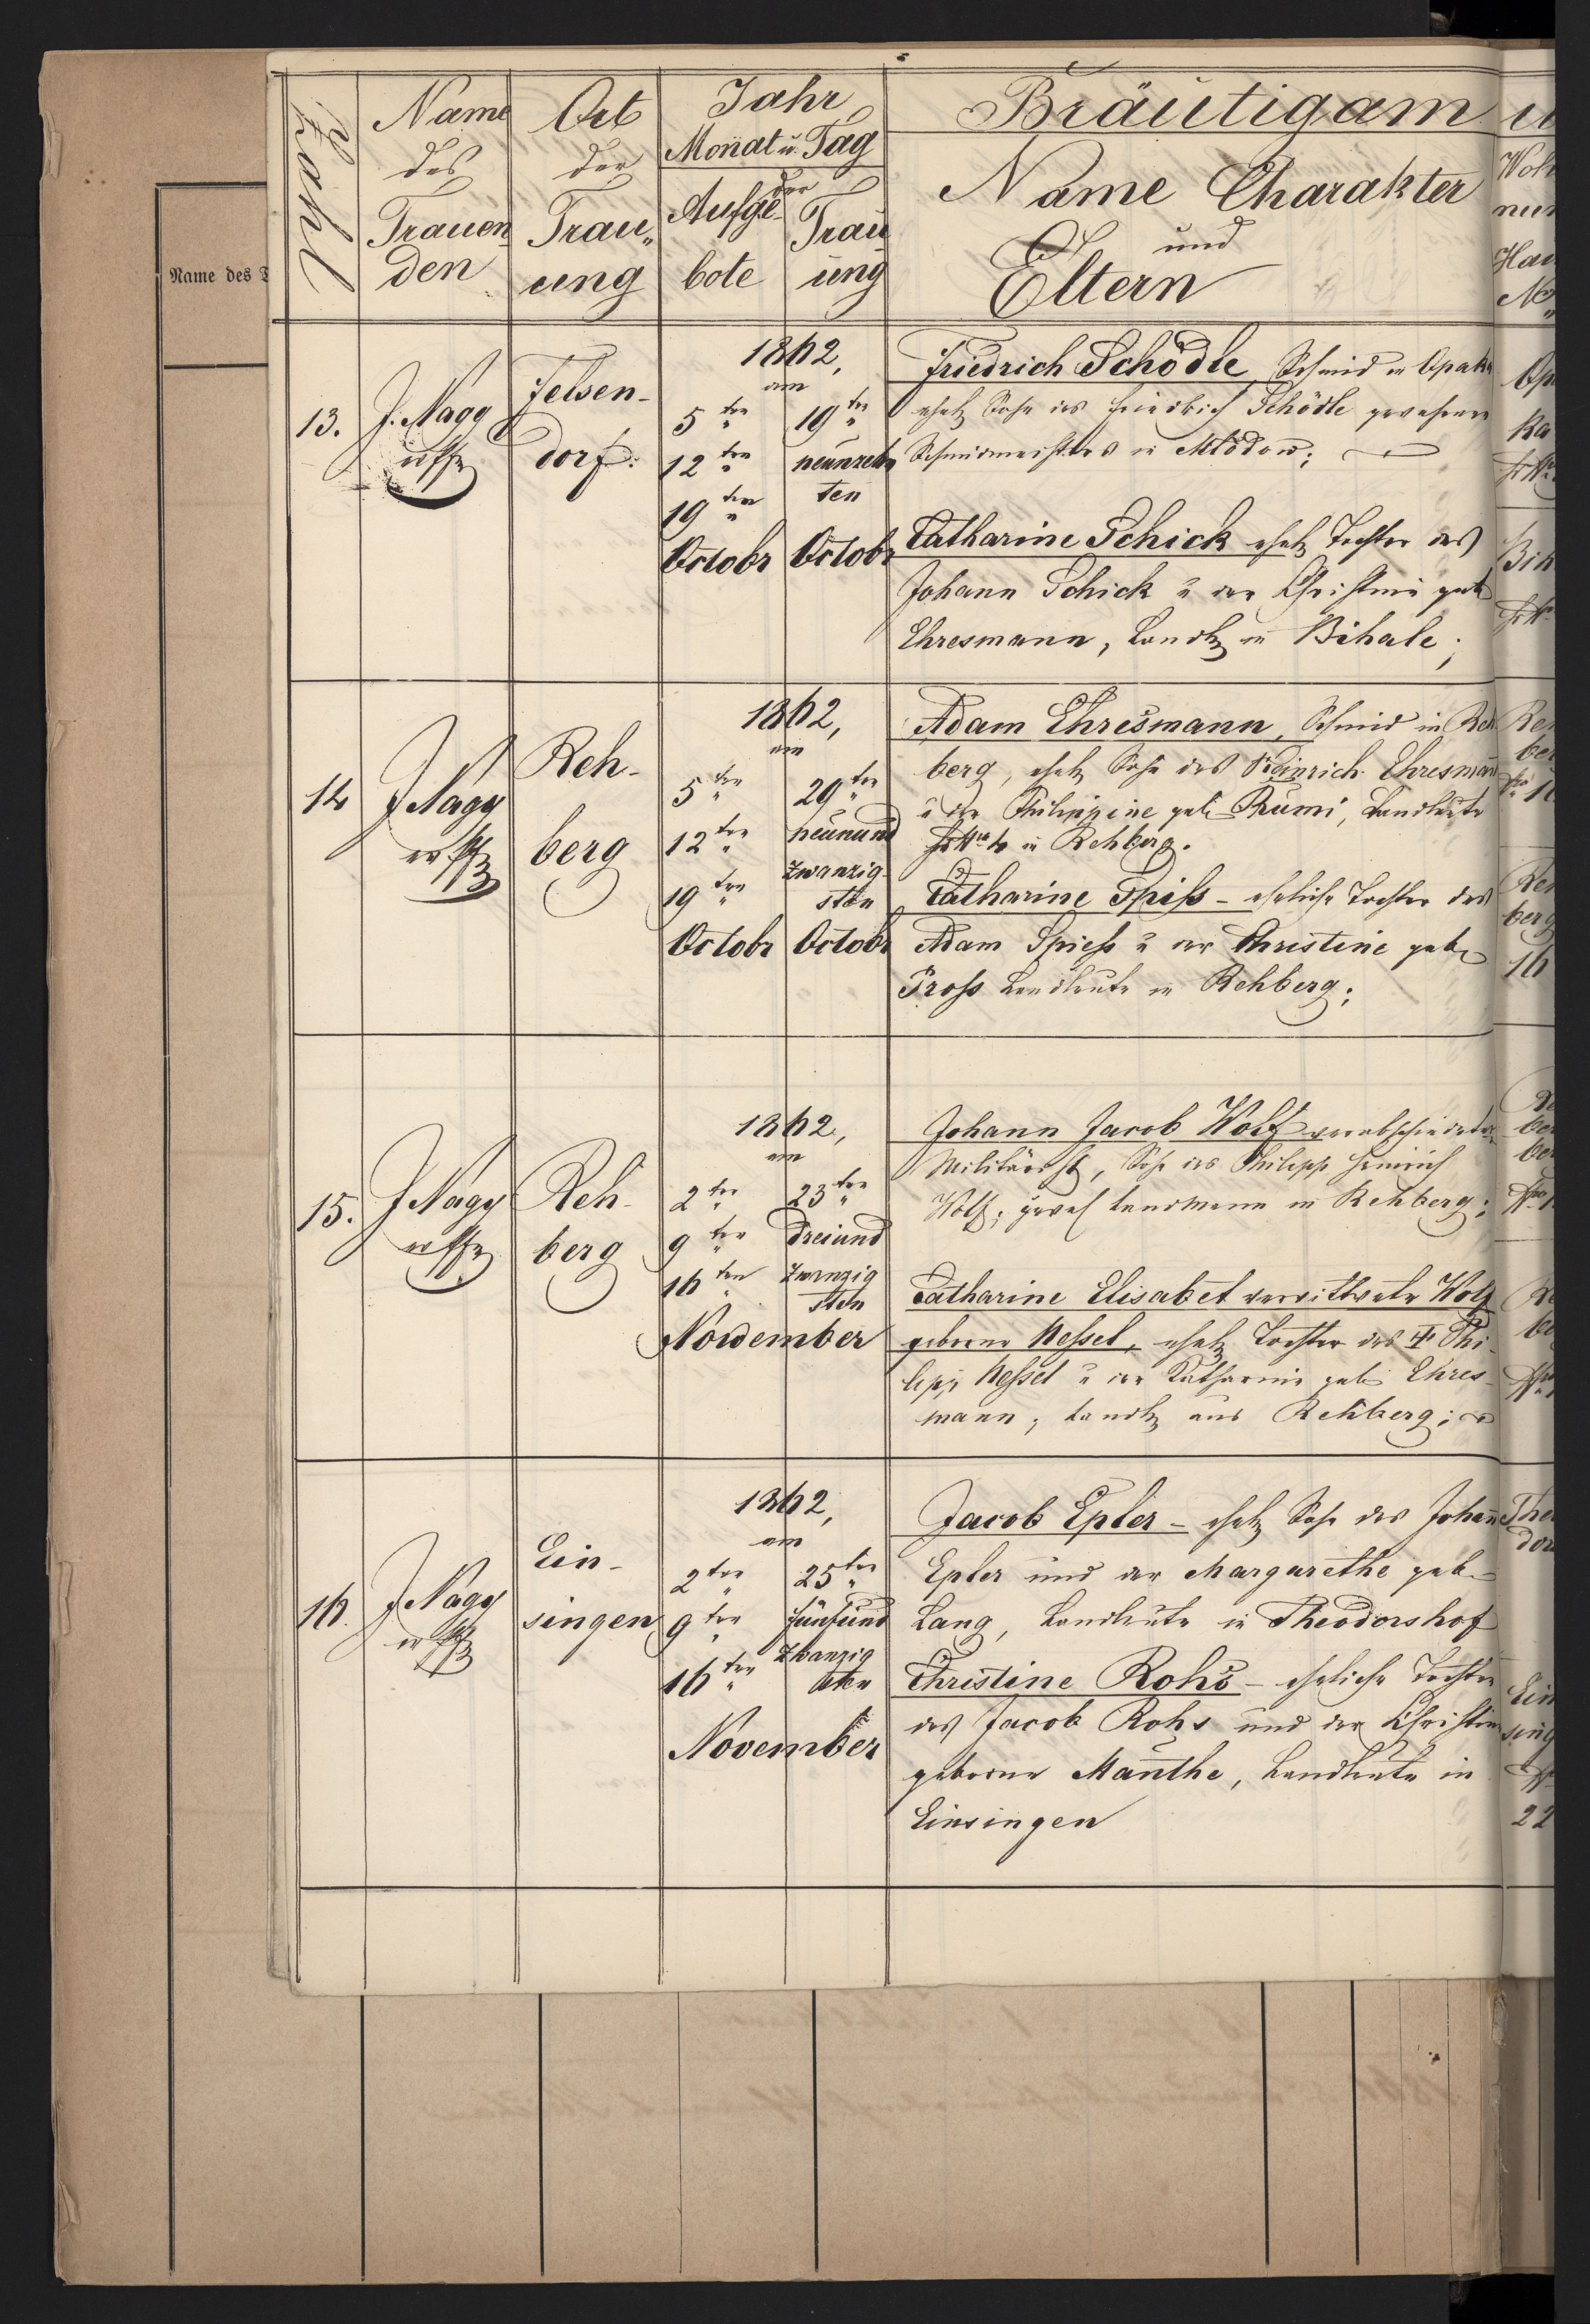 Zahl
Name
des
Trauen-
den
Ort
der
Trau„
ung
Jahr
Monat u. Tag
der
Aufge-
bote
Trau
ung
Bräutigam
Name Charakter
und
Eltern
Name des
13.
J. Nagy
Felsen-
dorf.
1862,
am
5ten
12ten
19ten
Octobr
19ten
neunzehn
ten
Octobr
Friedrich Schödle, Schmid in Opaka
ehel. Sohn des Friedrich Schödle gewesenen
Schmidmeisters in Mlodow;
Catharine Schick ehel. Tochter des
Johann Schick u der Christine geb
Ehresmann, Landl. in Bihale;
14
J Nagy
Reh-
berg
1862,
am
5ten
12ten
19ten
Octobr
29ten
neunund
zwanzig-
sten
Octobr
Adam Ehresmann, Schmid in Reh
berg, ehel. Sohn des Heinrich Ehresmañ
u der Philippine geb Rumi, Landleute
in Rehberg.
Catharine Spiss - eheliche Tochter des
Adam Spiess u der Christine geb
Pross Landleute in Rehberg;
15.
J Nagy
Reh-
berg
1862,
am
2ten
9ten
16ten
23ten
dreiund
zwanzig
sten
November
Johann Jacob Wolf verabschiedeter
Militärist, Sohn des Philipp Heinrich
Wolf, gewes Landmann in Rehberg;
Catharine Elisabet verwittwete Wolf
geborne Kessel, ehel. Tochter des Phi-
lipp Kessel u der Katharine geb Ehres-
mann, Landl. aus Rehberg;
16.
J Nagy
Ein-
singen
1862,
am
2ten
9ten
16ten
25ten
fünfund
zwanzig
sten
November
Jacob Epler - ehel. Sohn des Johañ
Epler und der Margarethe geb
Lang, Landleute in Theodorshof
Christine Rohs - eheliche Tochter
des Jacob Rohs und der Christine
geborne Manthe, Landleute in
Einsingen